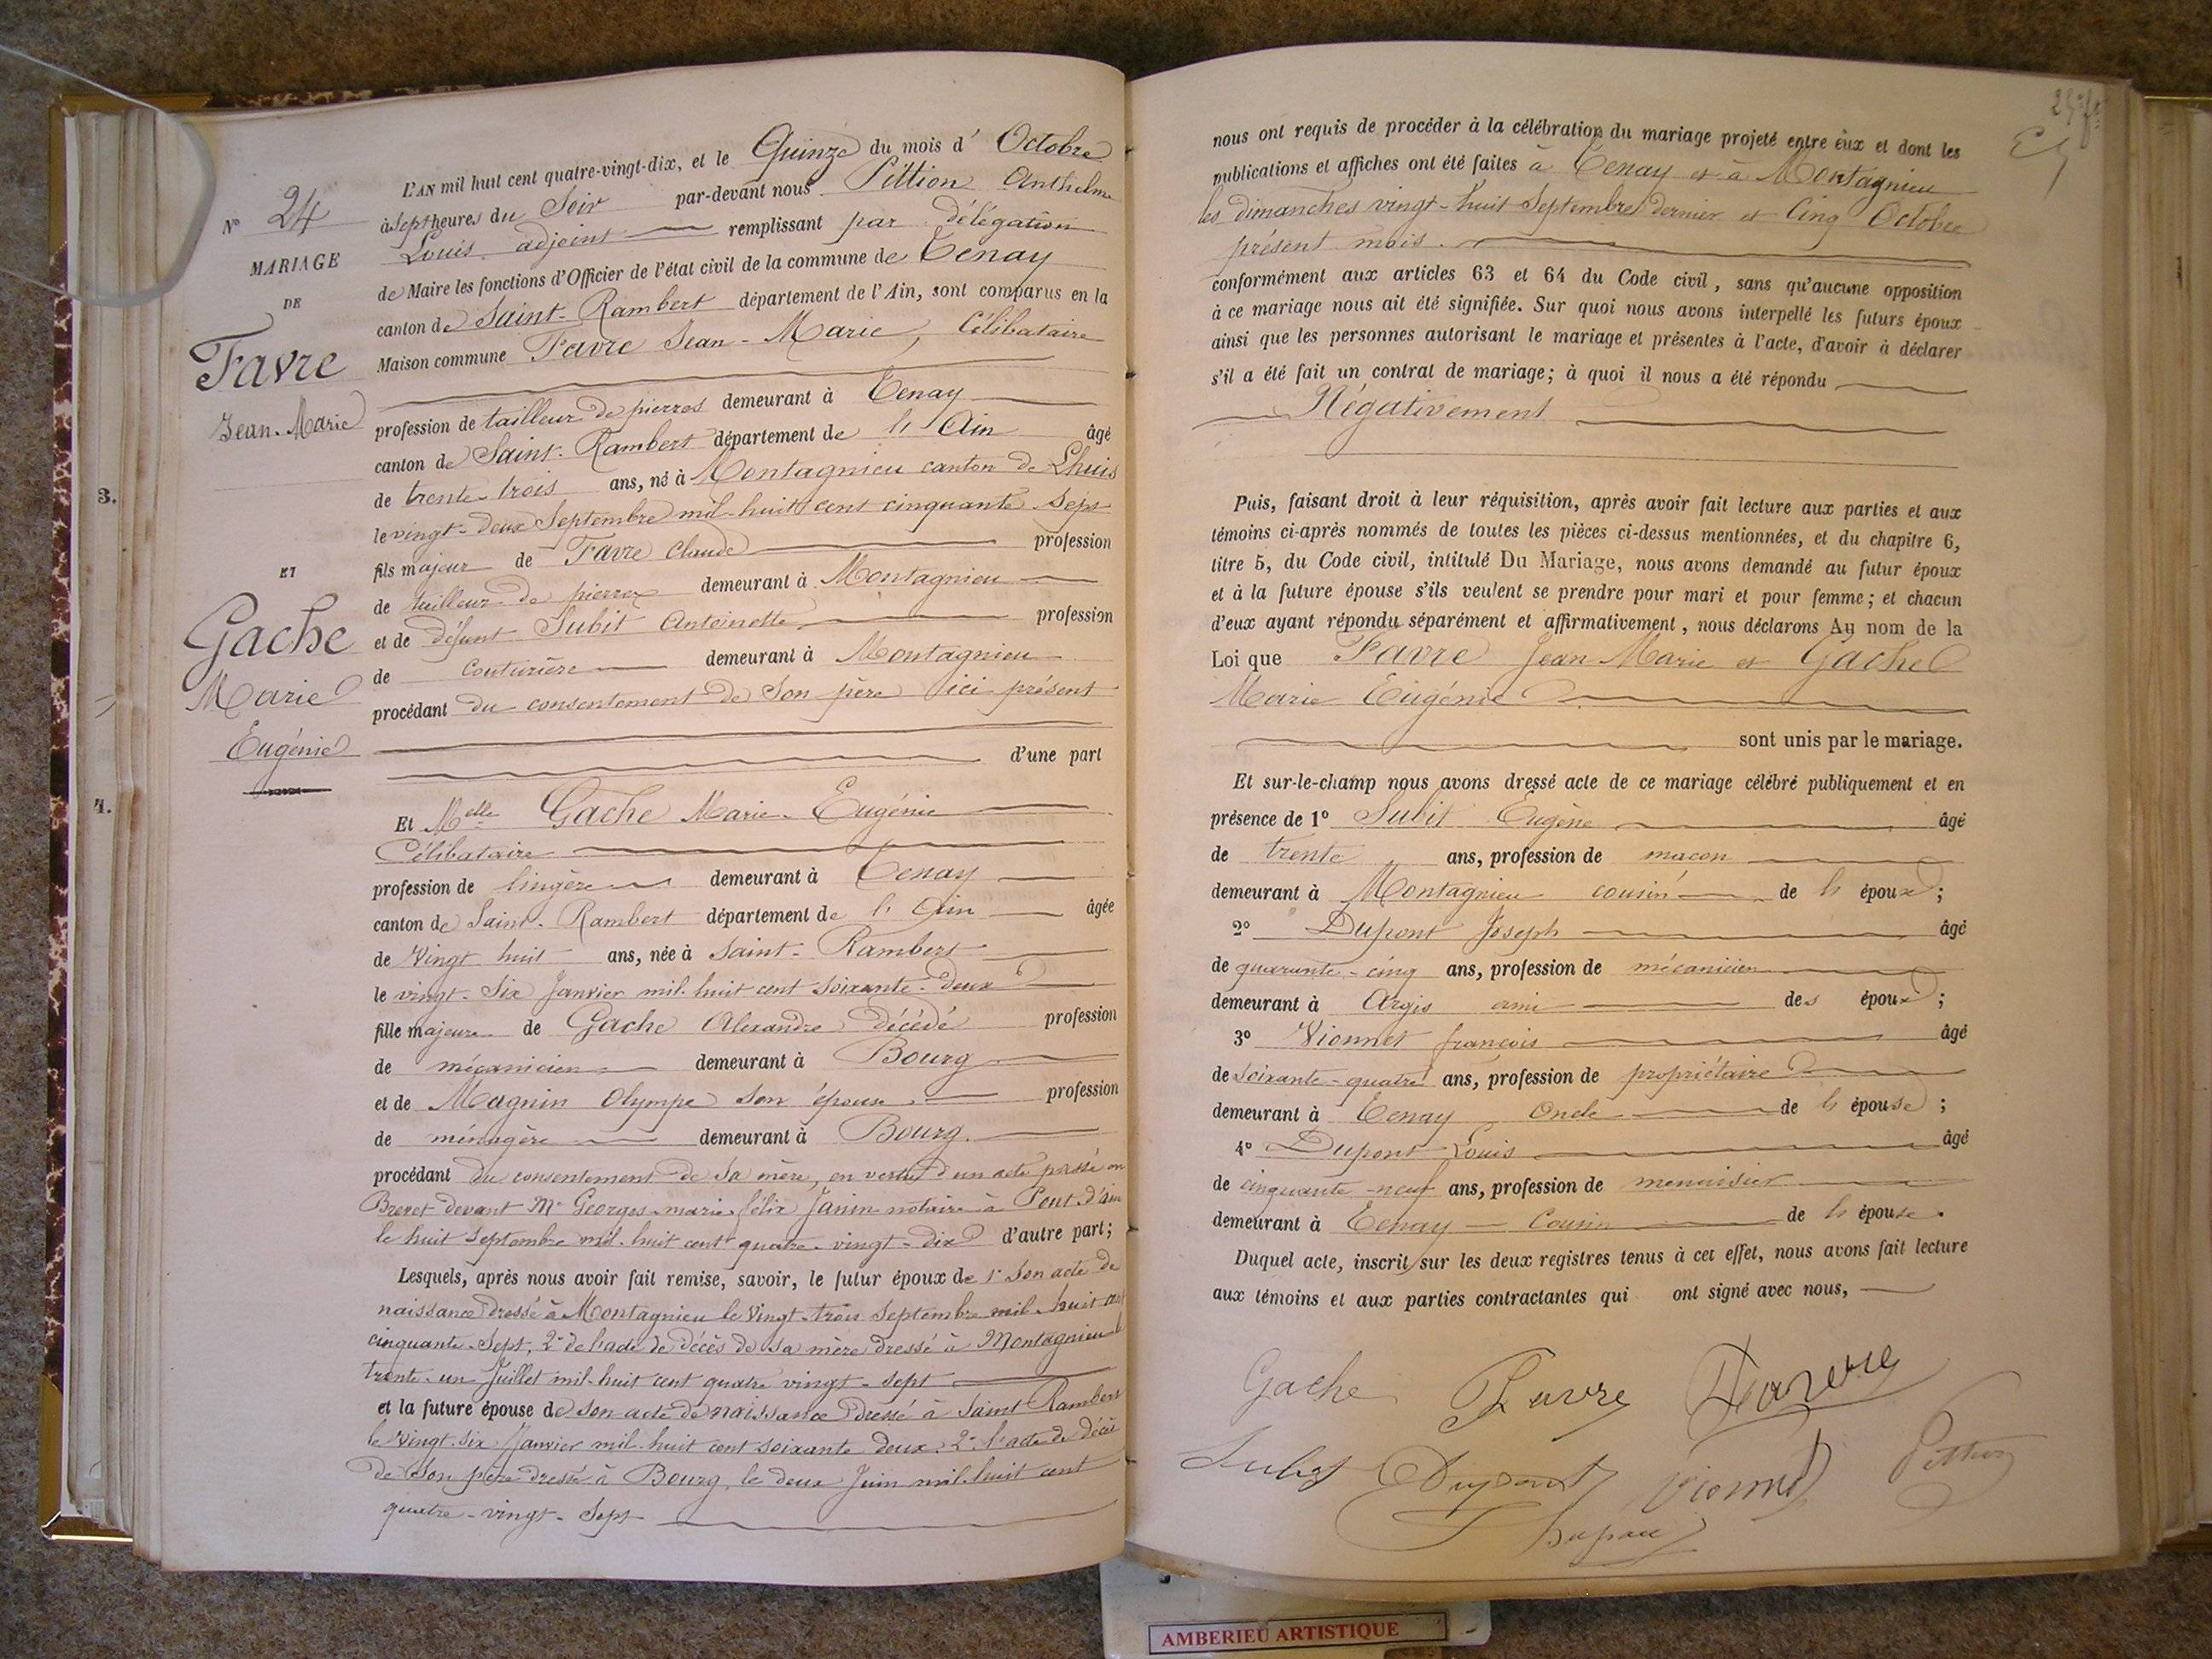 N° 24
MARIAGE
DE
Favre
Jean-Marie
ET
Gache
Marie
Eugénie
3.
4.
L'AN mil huit cent quatre-vingt-dix, et le Quinze du mois d' Octobre
à Sept heures du Soir par-devant nous Pittion Anthelme
Louis adjoint remplissant par délégation
de Maire les fonctions d'Officier de l'état civil de la commune de Tenay
canton de Saint-Rambert département de l'Ain, sont comparus en la
Maison commune Favre Jean-Marie, Célibataire
profession de tailleur de pierres demeurant à Tenay
canton de Saint-Rambert département de l'Ain âgé
de trente-trois ans, né à Montagnieu canton de Lhuis
le vingt-deux Septembre mil-huit cent cinquante-sept
fils majeur de Favre Claude profession
de tailleur de pierres demeurant à Montagnieu
et de défunt Subit Antoinette profession
de couturière demeurant à Montagnieu
procédant du consentement de son père ici présent
d'une part
Et Melle Gache Marie-Eugénie
Célibataire
profession de lingère demeurant à Tenay
canton de Saint-Rambert département de l'Ain âgée
de Vingt huit ans, née à Saint-Rambert
le vingt-Six Janvier mil-huit cent soixante-Deux
fille majeure de Gache Alexandre Décédé profession
de mécanicien demeurant à Bourg
et de Magnin Olympe son épouse profession
de ménagère demeurant à Bourg
procédant du consentement de sa mère, en vertu d'un acte passé en
Brevet devant Me Georges-marie-félix Janin notaire à Pont-d'ain
le huit Septembre mil-huit cent quatre-vingt-dix d'autre part;
Lesquels, après nous avoir fait remise, savoir, le futur époux de 1° Son acte de
naissance Dressé à Montagnieu le Vingt-trois Septembre mil-huit cent
cinquante-Sept, 2° de l'acte de Décès de sa mère Dressé à Montagnieu le
trente-un Juillet mil-huit cent quatre vingt-sept
et la future épouse de son acte de naissance Dressé à Saint Rambert
le Vingt-six Janvier mil-huit cent soixante deux, 2° l'acte de Décès
de Son père Dressé à Bourg, le deux Juin mil-huit cent
quatre-vingt-Sept
nous ont requis de procéder à la célébration du mariage projeté entre eux et dont les
publications et affiches ont été faites à Tenay et à Montagnieu
les dimanches vingt-huit Septembre dernier et Cinq Octobre
présent mois.
conformément aux articles 63 et 64 du Code civil, sans qu'aucune opposition
à ce mariage nous ait été signifiée. Sur quoi nous avons interpellé les futurs époux
ainsi que les personnes autorisant le mariage et présentes à l'acte, d'avoir à déclarer
s'il a été fait un contrat de mariage; à quoi il nous a été répondu
Négativement
Puis, faisant droit à leur réquisition, après avoir fait lecture aux parties et aux
témoins ci-après nommés de toutes les pièces ci-dessus mentionnées, et du chapitre 6,
titre 5, du Code civil, intitulé Du Mariage, nous avons demandé au futur époux
et à la future épouse s'ils veulent se prendre pour mari et pour femme; et chacun
d'eux ayant répondu séparément et affirmativement, nous déclarons Au nom de la
Loi que Favre Jean Marie et Gache
Marie Eugénie
sont unis par le mariage.
Et sur-le-champ nous avons dressé acte de ce mariage célébré publiquement et en
présence de 1° Subit Eugène âgé
de trente ans, profession de maçon
demeurant à Montagnieu cousin de l' époux;
2° Dupont Joseph âgé
de quarante-cinq ans, profession de mécanicien
demeurant à Argis ami des époux;
3° Vionnet françois âgé
de soixante-quatre ans, profession de propriétaire
demeurant à Tenay Oncle de l'épouse;
4° Dupont Louis âgé
de cinquante-neuf ans, profession de menuisier
demeurant à Tenay Cousin de l'épouse.
Duquel acte, inscrit sur les deux registres tenus à cet effet, nous avons fait lecture
aux témoins et aux parties contractantes qui ont signé avec nous,
Gache Favre
Subit Dupont Vionnet Pittion
AMBERIEU ARTISTIQUE